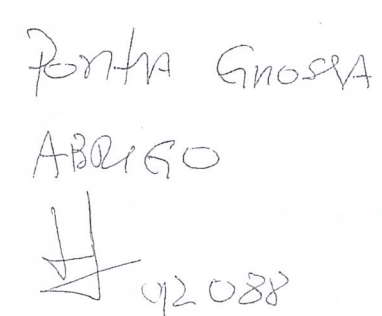 PONTA GROSSA
ABRIGO
92088